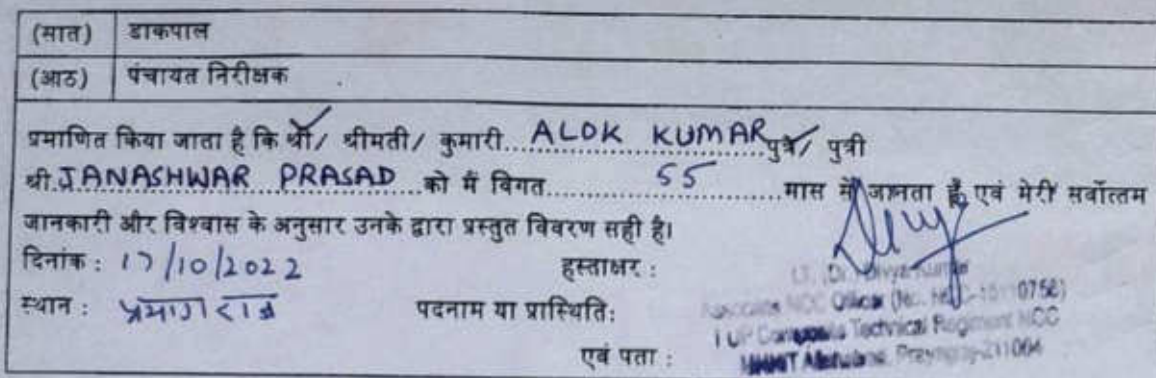 (सात) डाकपाल
(आठ) पंचायत निरीक्षक
प्रमाणित किया जाता है कि श्री/ श्रीमती/ कुमारी... ALOK KUMAR पुत्र/ पुत्री
श्री JANASHWAR PRASAD को मैं विगत 55 मास से जानता हूँ एवं मेरी सर्वोत्तम
जानकारी और विश्वास के अनुसार उनके द्वारा प्रस्तुत विवरण सही है।
दिनांक : 17/10/2022 हस्ताक्षर :
Lt. Dr. Divya Kumar
स्थान : प्रयागराज पदनाम या प्रास्थिति:
Associate NCC Officer (No.
1 UP Composite Technical Regiment NCC
एवं पता :
MNNIT Allahabad, Prayagraj-211004